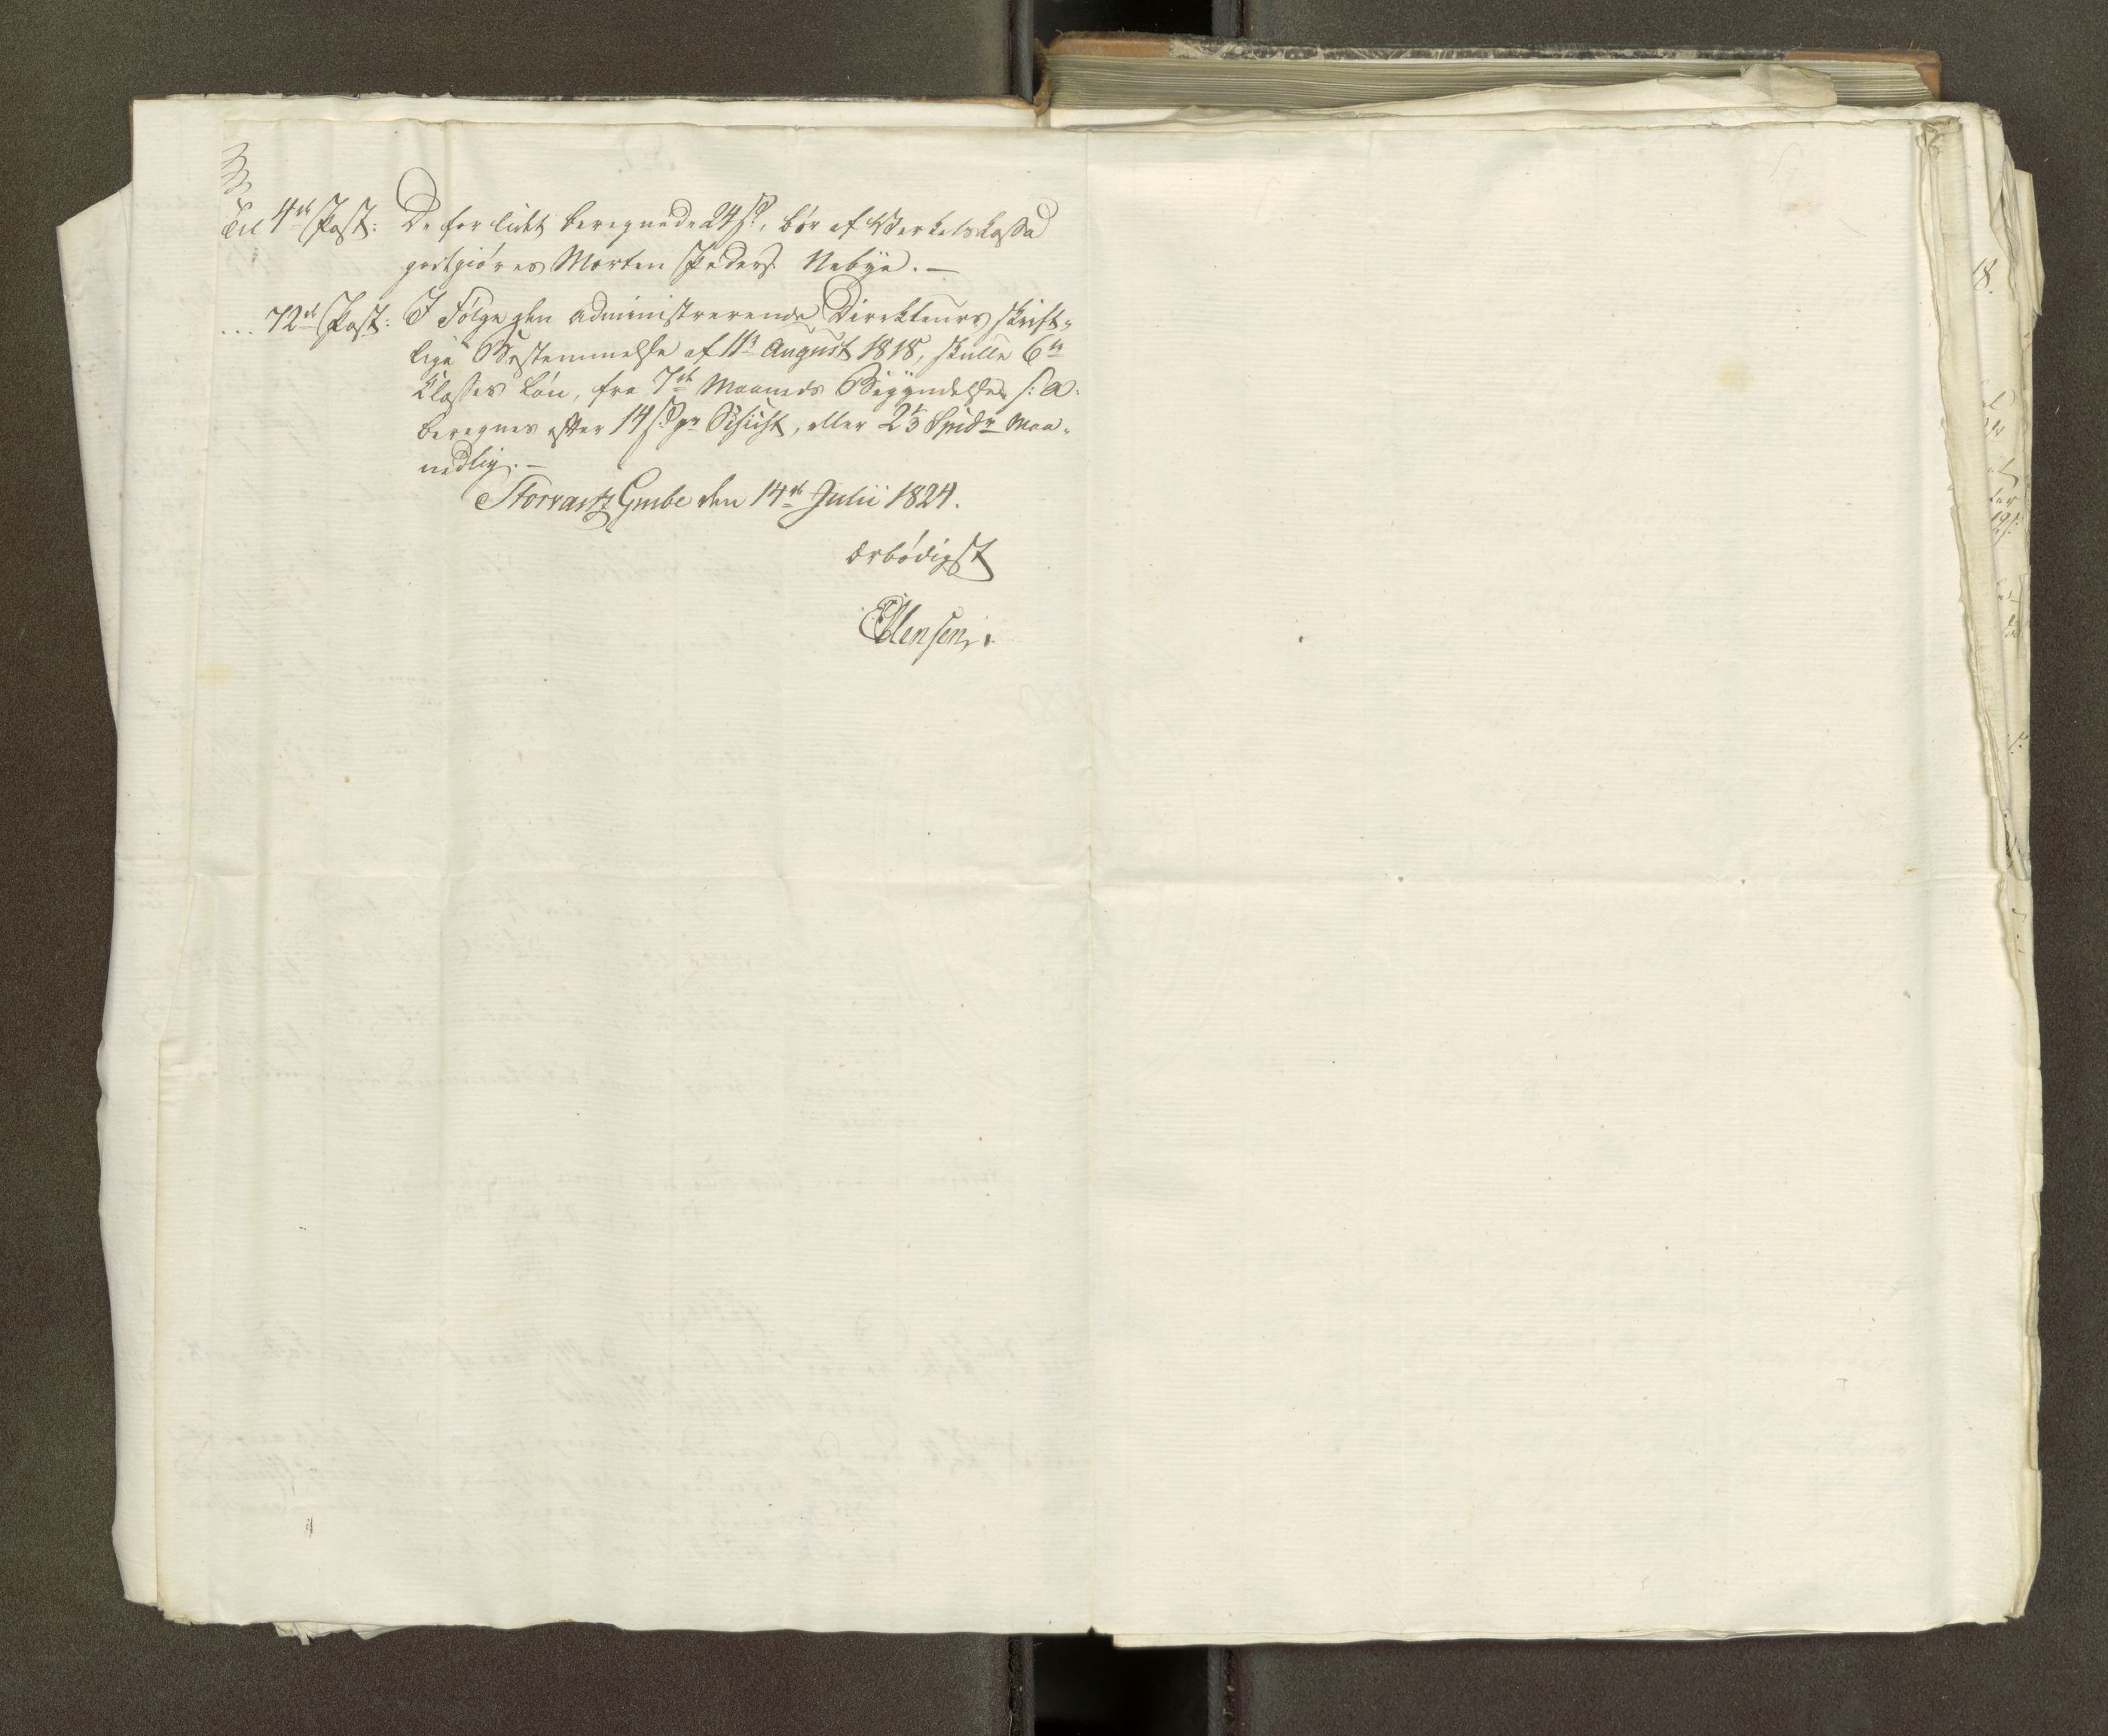 Til 4de Post: De for lidet beregnede 24 s, bør af Værkets Kassa
godtgiøres Morten Peders. Nebye. —
... 72de Post: I Følge den administrerende Direkteurs skrift-
lige Bestemmelse af 11te August 1818, skulle 6te
Klasses Løn, fra 7de Maaneds Begyndelse s: A:
beregnes efter 14 s pr Schicht, eller 2⅓ Spidr Maa-
nedlig. —
Storvartz Grube den 14de Julii 1824.
ærbødigst
18.